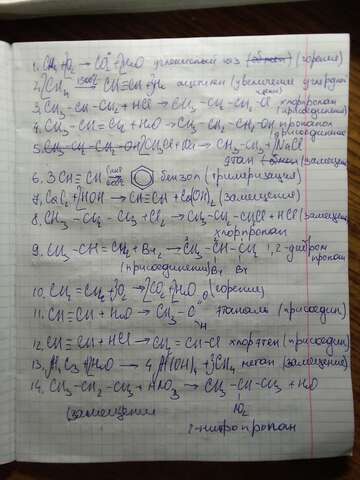 1. CH₄ + O₂ → CO₂ + H₂O углекислый газ (горения)
2. 2CH₄ 1500°C → CH≡CH + H₂ ацетилен (увеличение углеродной
цепи)
3. CH₃-CH=CH₂ + HCl → CH₃-CH₂-CH₂-Cl хлорпропан
(присоединение)
4. CH₃-CH=CH₂ + H₂O → CH₃-CH₂-CH₂-OH пропанол
присоединение
5. 2CH₃Cl + 2Na → CH₃-CH₃ + 2NaCl
этан (замещения
6. 3CH≡CH Cакт 600°C → бензол (тримеризация)
7. CaC₂ + 2HOH → CH≡CH + Ca(OH)₂ (замещения)
8. CH₃-CH₂-CH₃ + Cl₂ → CH₃-CH₂-CH₂Cl + HCl (замещения
хлорпропан
9. CH₃-CH=CH₂ + Br₂ → CH₃-CH-CH₂ 1,2-дибром
пропан
(присоединения) Br Br
10. CH₂=CH₂ + O₂ → 2CO₂ + H₂O (горения)
11. CH≡CH + H₂O → CH₃-C O H этаналь (присоедин)
12. CH≡CH + HCl → CH₂=CH-Cl хлорэтен (присоедин)
13. Al₄C₃ + H₂O → 4Al(OH)₃ + 3CH₄ метан (замещения)
14. CH₃-CH₂-CH₃ + HNO₃ → CH₃-CH-CH₃ + H₂O
NO₂
(замещения
2-нитропропан